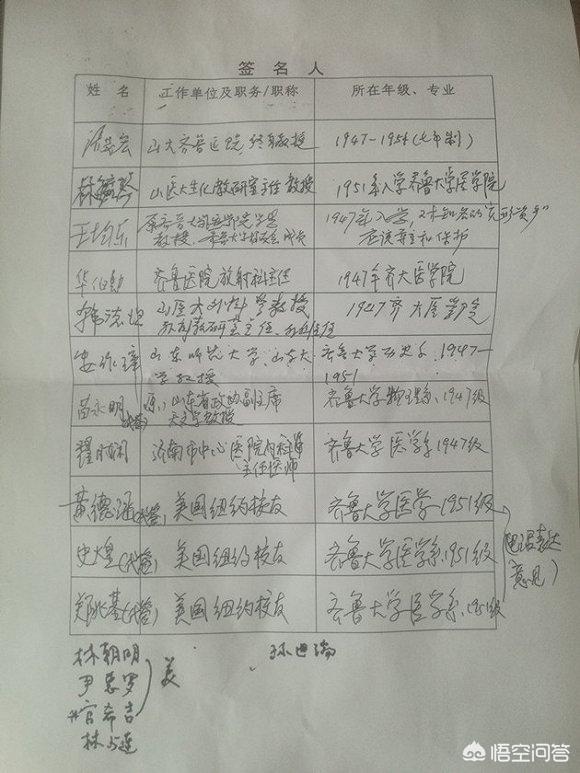 签 名 人
姓 名 工作单位及职务/职称 所在年级、专业
山大齐鲁医院, 终身教授 1947-1954(七年制)
山医大生化教研室主任 教授 1951年入学齐鲁大学医学院
王均乐 教授 1947年入学,
应该尊重和保护
华伯勋 齐鲁医院放射科主任 1947年齐大医学院
山医大外科学教授 1947齐大医学院
安作璋 山东师范大学、山东大 齐鲁大学历史系、1947—
学教授 1951
苗永明 原山东省政协副主席 齐鲁大学物理系、1947级
天文学教授
济南市中心医院内科 齐鲁大学医学系1947级
主任医师
黄德 (代签) 美国纽约校友 齐鲁大学医学 1951级
史煌(代签) 美国纽约校友 齐鲁大学医学系、1951级
郑兆基(代签) 美国纽约校友 齐鲁大学医学系、1951级
电话表达
意见
林朝明
尹思罗 美
官希吉
林占连
悟空问答